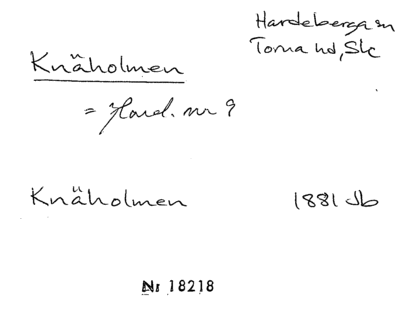 Hardeberga sn
Torna hd, Skc
Knäholmen
= Hard. nr 9
Knäholmen 1881 Jb
Nr 18218